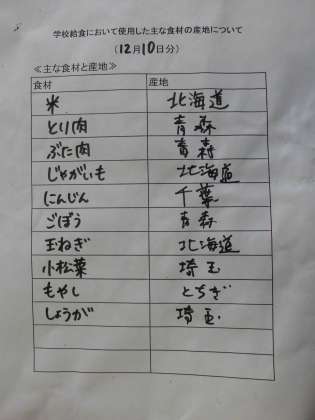 学校給食において使用した主な食材の産地について
(12月10日分)
≪主な食材と産地≫
食材 産地
米 北海道
とり肉 青森
ぶた肉 青森
じゃがいも 北海道
にんじん 千葉
ごぼう 青森
玉ねぎ 北海道
小松菜 埼玉
もやし とちぎ
しょうが 埼玉